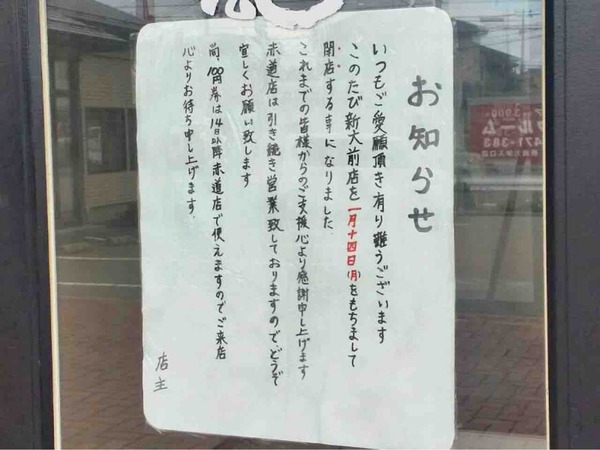 お知らせ
いつもご愛顧頂き有り難うございます
このたび新大前店を一月十四日(月)をもちまして
閉店する事になりました、
これまでの皆様からのご支援心より感謝申し上げます
赤道店は引き続き営業致しておりますので、どうぞ
宜しくお願い致します
尚、100円券は14日以降赤道店で使えますのでご来店
心よりお待ち申し上げます。
店主
ルーム
471-383